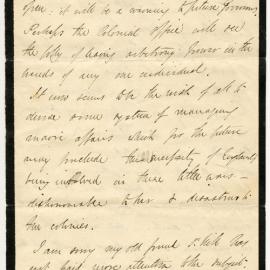 open: it will be a warning to future Governors.
Perhaps the Colonial Office will see
the folly of leaving arbitrary power in the
hands of any one individual.
It now seems to be the wish of all to
devise some system of managing
maori affairs which for the future
may preclude the necessity of England
being involved in these little wars -
dishonorable to her & disastrous to
the colonies.
I am sorry my old friend
not paid more attention to the subject